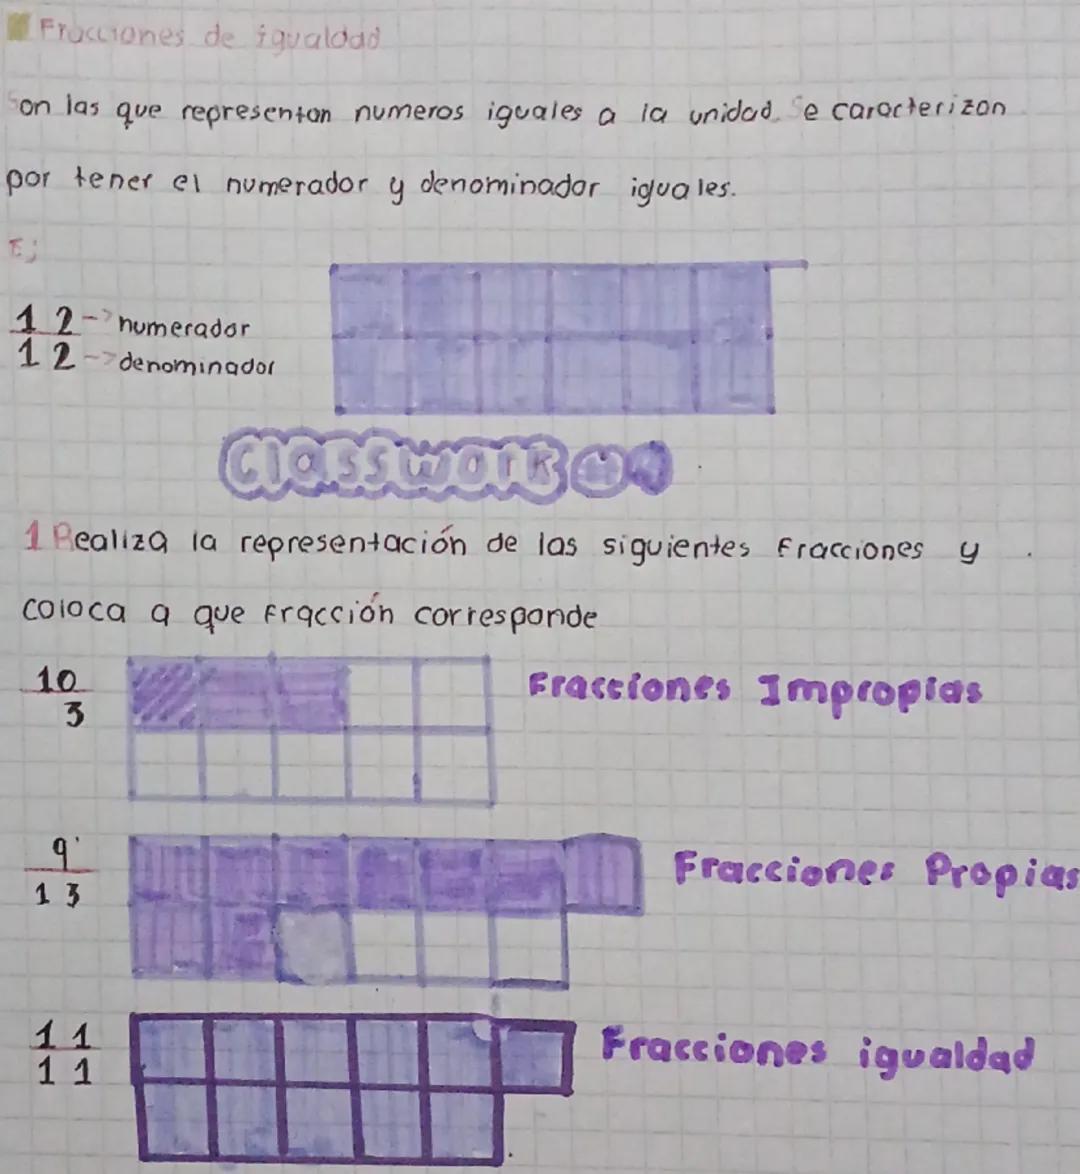 Fracciones de igualdad
Son las que representan numeros iguales a la unidad. Se caracterizan
por tener el numerador y denominador iguales.
Ej
12 -> numerador
12 -> denominador
Classwork
1 Realiza la representación de las siguientes Fracciones y
coloca a que Fracción corresponde
10
3
Fracciones Impropias
9
13
Fracciones Propias
11
11
Fracciones igualdad